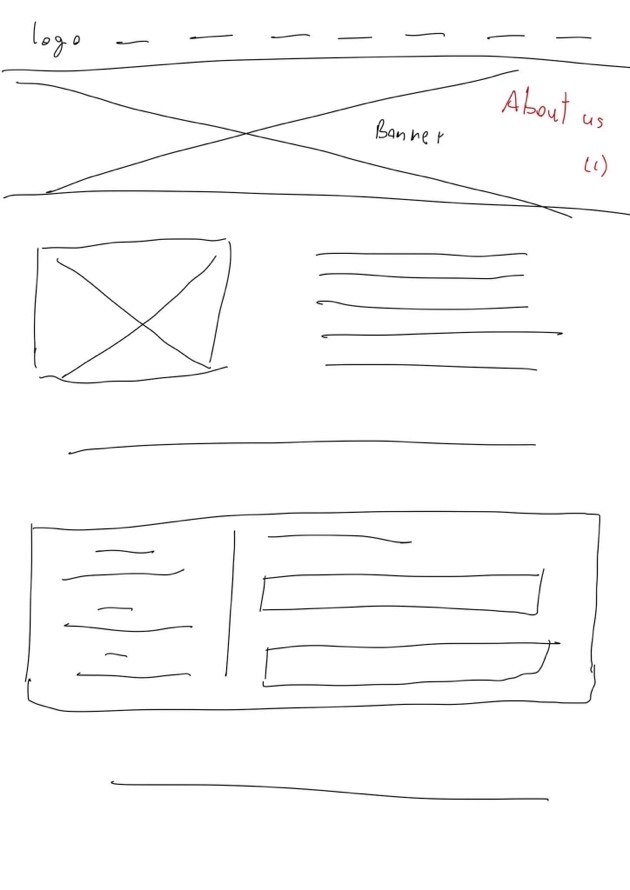 logo
Banner
About us
(1)